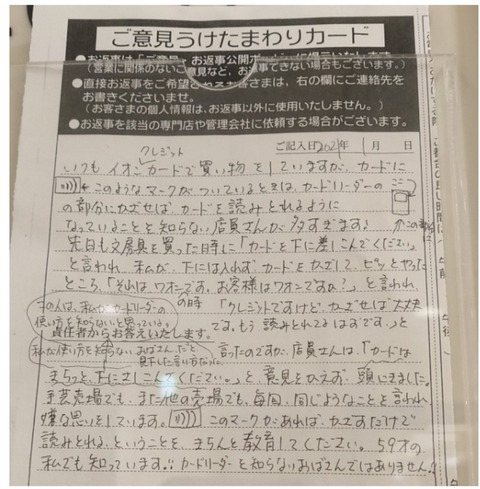 ご意見うけたまわりカード
●お返事は「ご意見・お返事公開ボードに掲示いたします
(営業に関係のないご意見など、お返事できない場合もございます。)
●直接お返事をご希望されるお客さまは、右の欄にご連絡先を
お書きくださいませ。
(お客さまの個人情報は、お返事以外に使用いたしません。)
●お返事を該当の専門店や管理会社に依頼する場合がございます。
ご記入日2021年1月 日
クレジット
いつもイオンカードで買い物をしていますが、カードに
←このようなマークがついているときは、カードリーダーの
ここ
の部分にかざせば、カードを読みとれるように
なっていることを知らない店員さんが多すぎます!
↑この部分
先日も文房具を買った時に「カードを下に差しこんでください。」
と言われ、私が、下には入れずカードをかざして、ピッとやった
ところ、「それはワオンです。お客様はワオンですか?」と言われ、
その人は、私がカードリーダーの
使い方を知らないと思っている。
の時「クレジットですけど、かざせば大丈夫
です。もう読みとれてるはずです。」と
責任者からお答えいたします。
私が使い方を知らないおばさんだと
見下した言い方だった。
言ったのですが、店員さんは、「カードは
きちっと、下にさしこんでください。」と、意見をかえず、頭にきました。
手芸売場でも、また他の売場でも、毎回、同じようなことを言われ、
嫌な思いをしています。このマークがあれば、かざすだけで
読みとれる、ということを、きちんと教育してください。59才の
私でも知っています!!カードリーダーを知らないおばさんではありません!